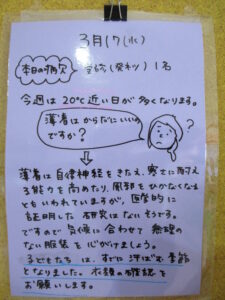 3月17(水)
本日の病欠 全欠(発熱) 1名
今週は20℃近い日が多くなります。
薄着はからだにいい
ですか?
?
薄着は自律神経をきたえ、寒さに耐え
る能力を高めたり、風邪をひかなくなる
ともいわれていますが、医学的に
証明した研究はないそうです。
ですので気候に合わせて無理の
ない服装を心がけましょう。
子どもたちは、すぐに汗ばむ季節
となりました。衣類の確認を
お願いします。